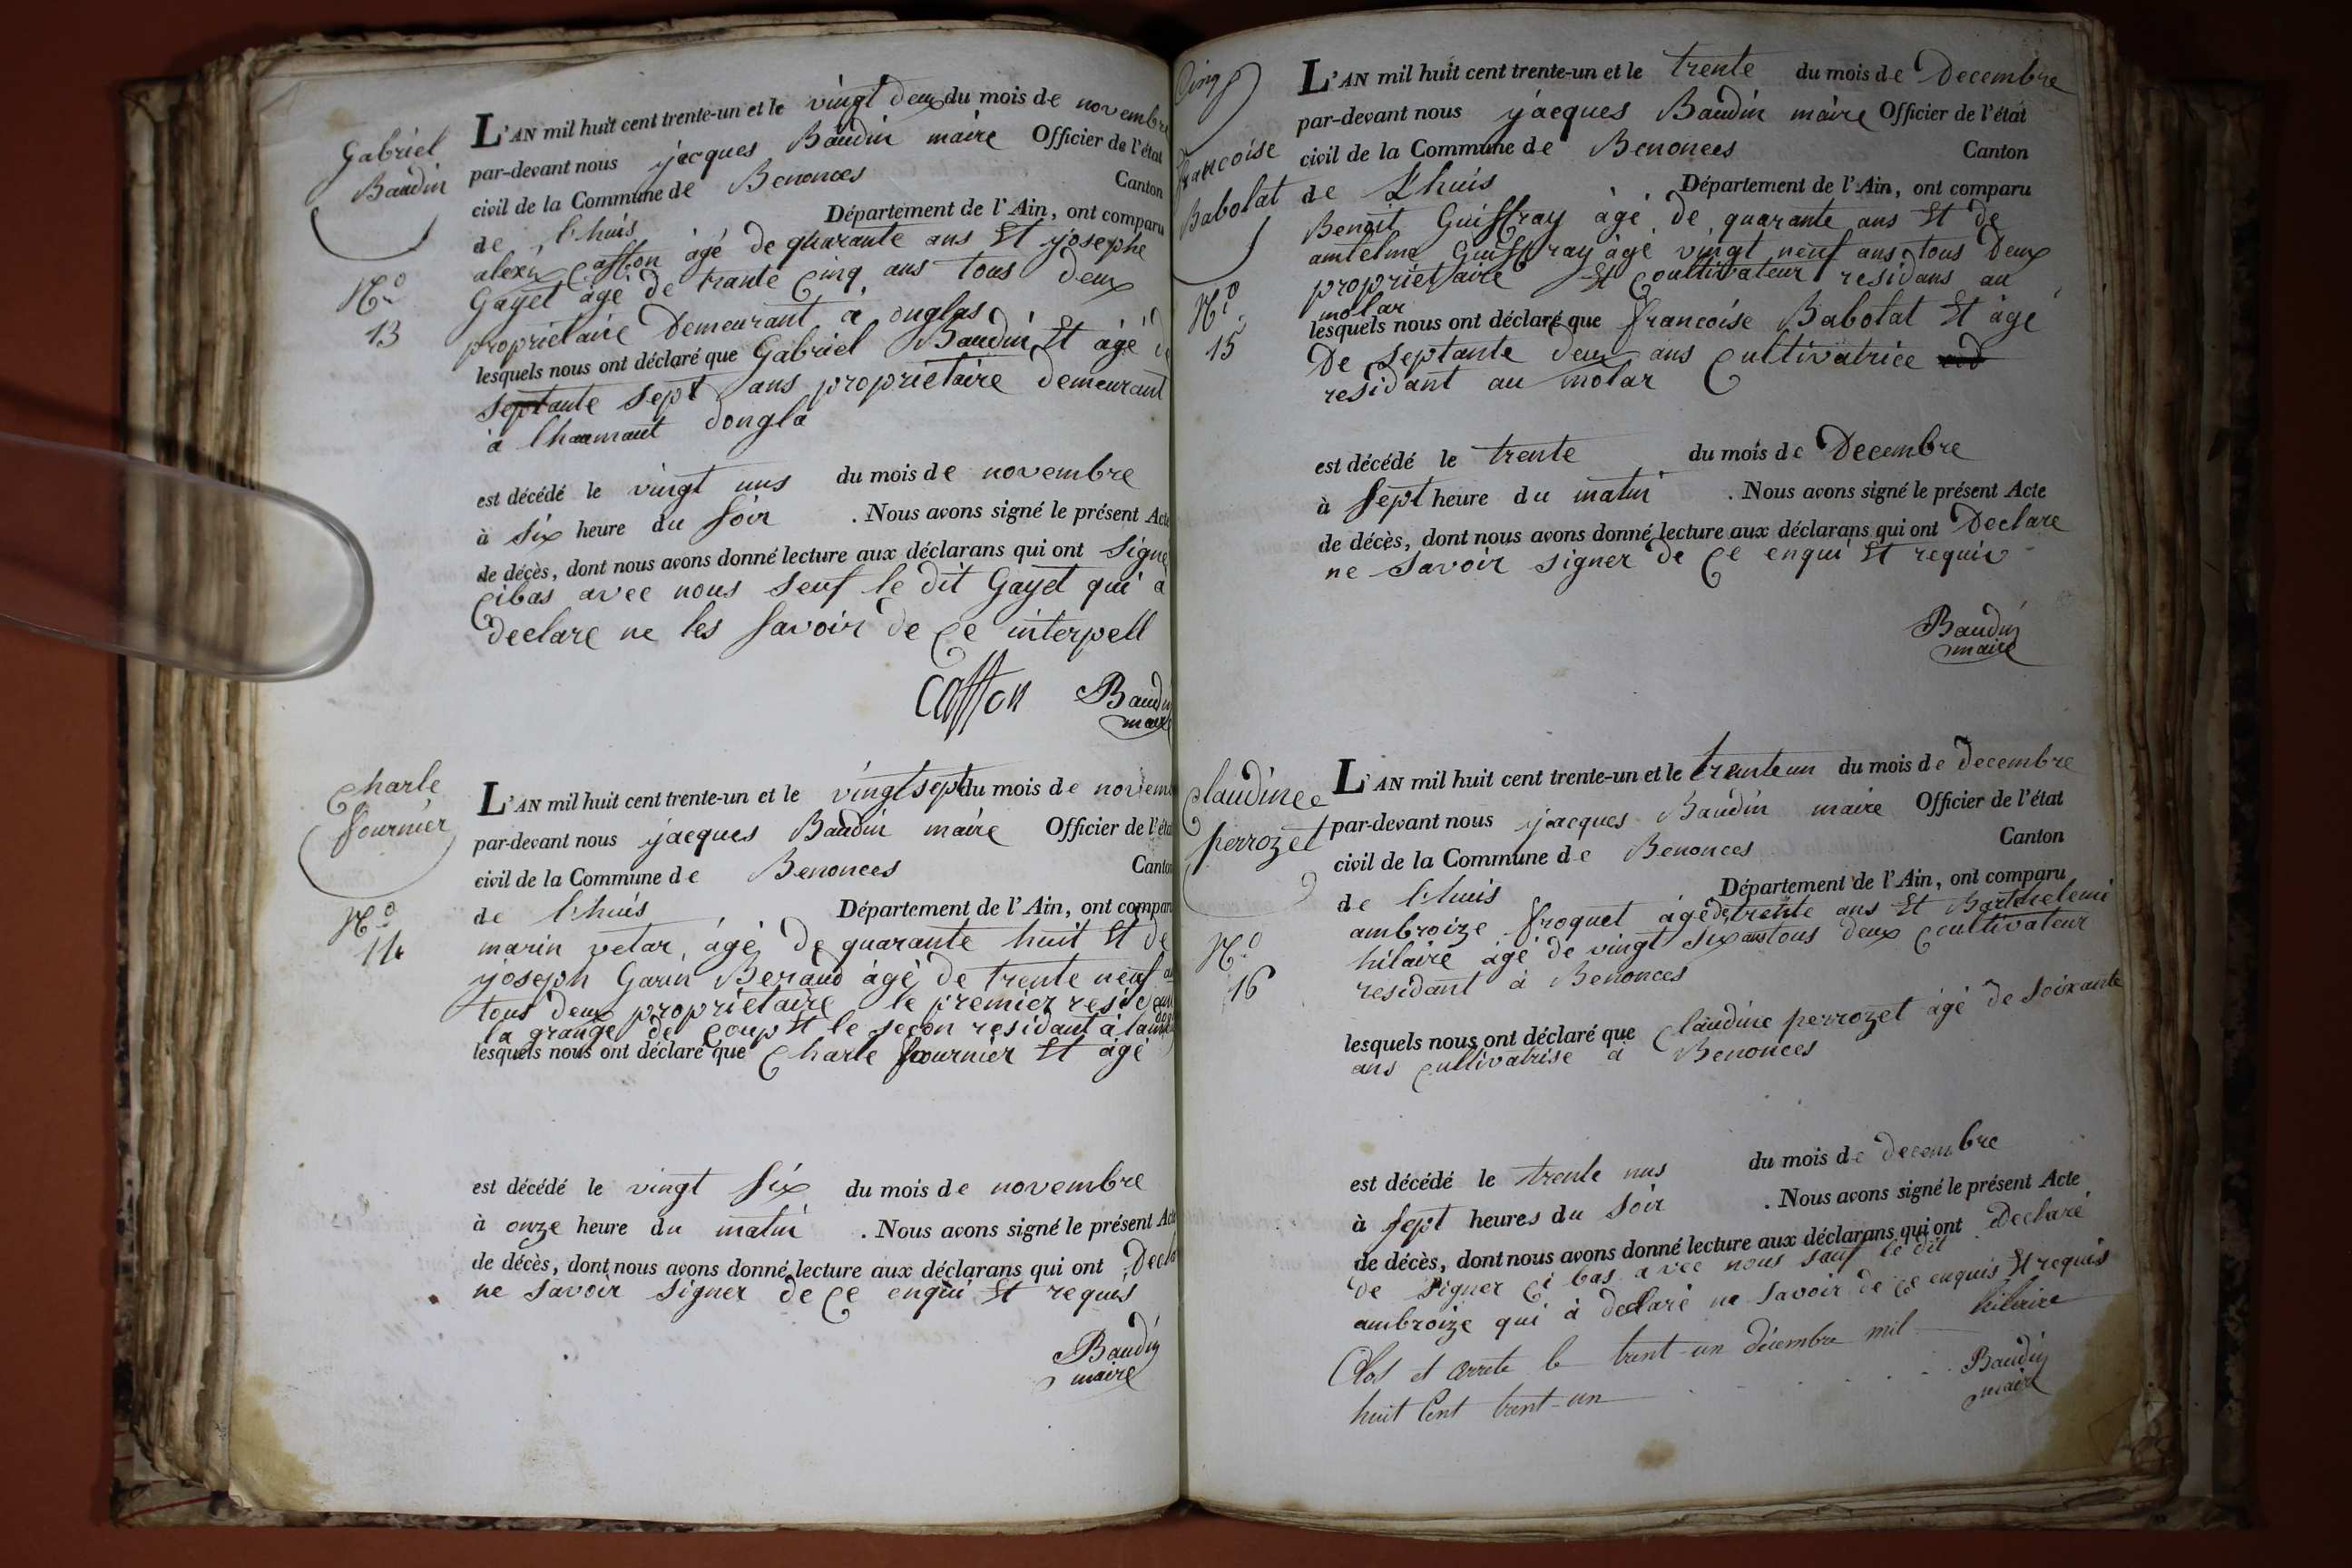 Gabriel
Baudin
N.o
13
L'AN mil huit cent trente-un et le vingt deux du mois de novembre
par-devant nous jacques Baudin maire Officier de l'état
civil de la Commune de Benonces Canton
de Lhuis Département de l'Ain, ont comparu
alexis Caffton âgé de quarante ans Et josephe
Gayet âgé de trante cinq ans tous deux
proprietaire Demeurant à onglas
lesquels nous ont déclaré que Gabriel Baudin Et âgé de
septante sept ans proprietaire demeurant
à dongla
est décédé le vingt uns du mois de novembre
à six heure du soir . Nous avons signé le présent Acte
de décès, dont nous avons donné lecture aux déclarans qui ont signe
cibas avec nous seuf le dit Gayet qui a
declare ne les savoir de ce interpell
Baudin
maire
Charle
fournier
N.o
14
L'AN mil huit cent trente-un et le vingt sept du mois de novem
par-devant nous jacques Baudin maire Officier de l'éta
civil de la Commune de Benonces Canton
de Lhuis Département de l'Ain, ont compar
marin vetar, âgé de quarante huit Et de
joseph Garin Beraud âgé de trente neuf
tous deux proprietaire le premier
la grange de coup Et le segon residant à
lesquels nous ont déclaré que Charle fournier Et âgé
est décédé le vingt six du mois de novembre
à onze heure du matin . Nous avons signé le présent Acte
de décès, dont nous avons donné lecture aux déclarans qui ont Decla
ne savoir signer de ce enqui Et requis
Baudin
maire
Cinq
francoise
Babolat
N.o
15
L'AN mil huit cent trente-un et le trente du mois de Decembre
par-devant nous jacques Baudin maire Officier de l'état
civil de la Commune de Benonces Canton
de Lhuis Département de l'Ain, ont comparu
Benoit Guiffray âgé de quarante ans Et de
amtelme Guiffray âgé vingt neuf ans tous Deux
proprietaire Et coultivateur residans au
molar
lesquels nous ont déclaré que francoise Babolat Et âgé
De septante deux ans Cultivatrice
residant au molar
est décédé le trente du mois de Decembre
à sept heure du matin . Nous avons signé le présent Acte
de décès, dont nous avons donné lecture aux déclarans qui ont Declare
ne savoir signer de ce enqui Et requis
Baudin
maire
Claudinee
perrozet
N.o
16
L'AN mil huit cent trente-un et le trante un du mois de decembre
par-devant nous jacques Baudin maire Officier de l'état
civil de la Commune de Benonces Canton
de Lhuis Département de l'Ain, ont comparu
ambroize froquet âgé de trente ans Et Barthelemi
hilaire âgé de vingt six ans tous deux coultivateur
residant à Benonces
lesquels nous ont déclaré que Claudine perrozet âgé de soixante
ans cultivatrise à Benonces
est décédé le trente uns du mois de decembre
à sept heures du soir . Nous avons signé le présent Acte
de décès, dont nous avons donné lecture aux déclarans qui ont Declaré
De signer ci bas avec nous sauf le dit
ambroize qui à declaré ne savoir de ce enquis Et requis
hilaire
Clos et arrete le trent-un décembre mil
huit Cent trent-un
Baudin
maire